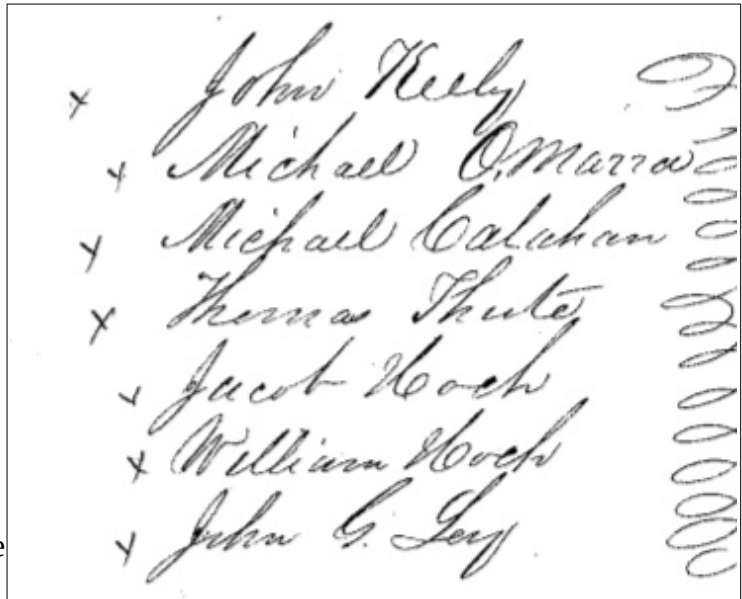 x John Keely
x Michael O,Marra
x Michael Calahan
x Thomas
x Jacob Hoch
x William Hoch
x John G.
e